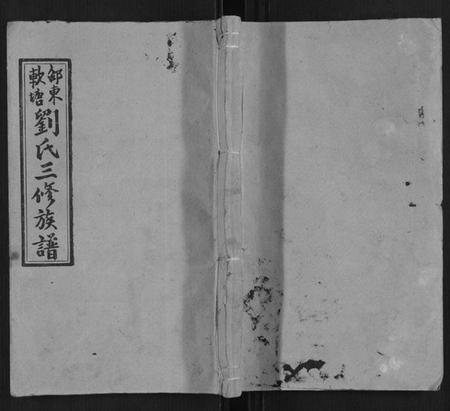 邵東
軟塘
劉氏三修族譜